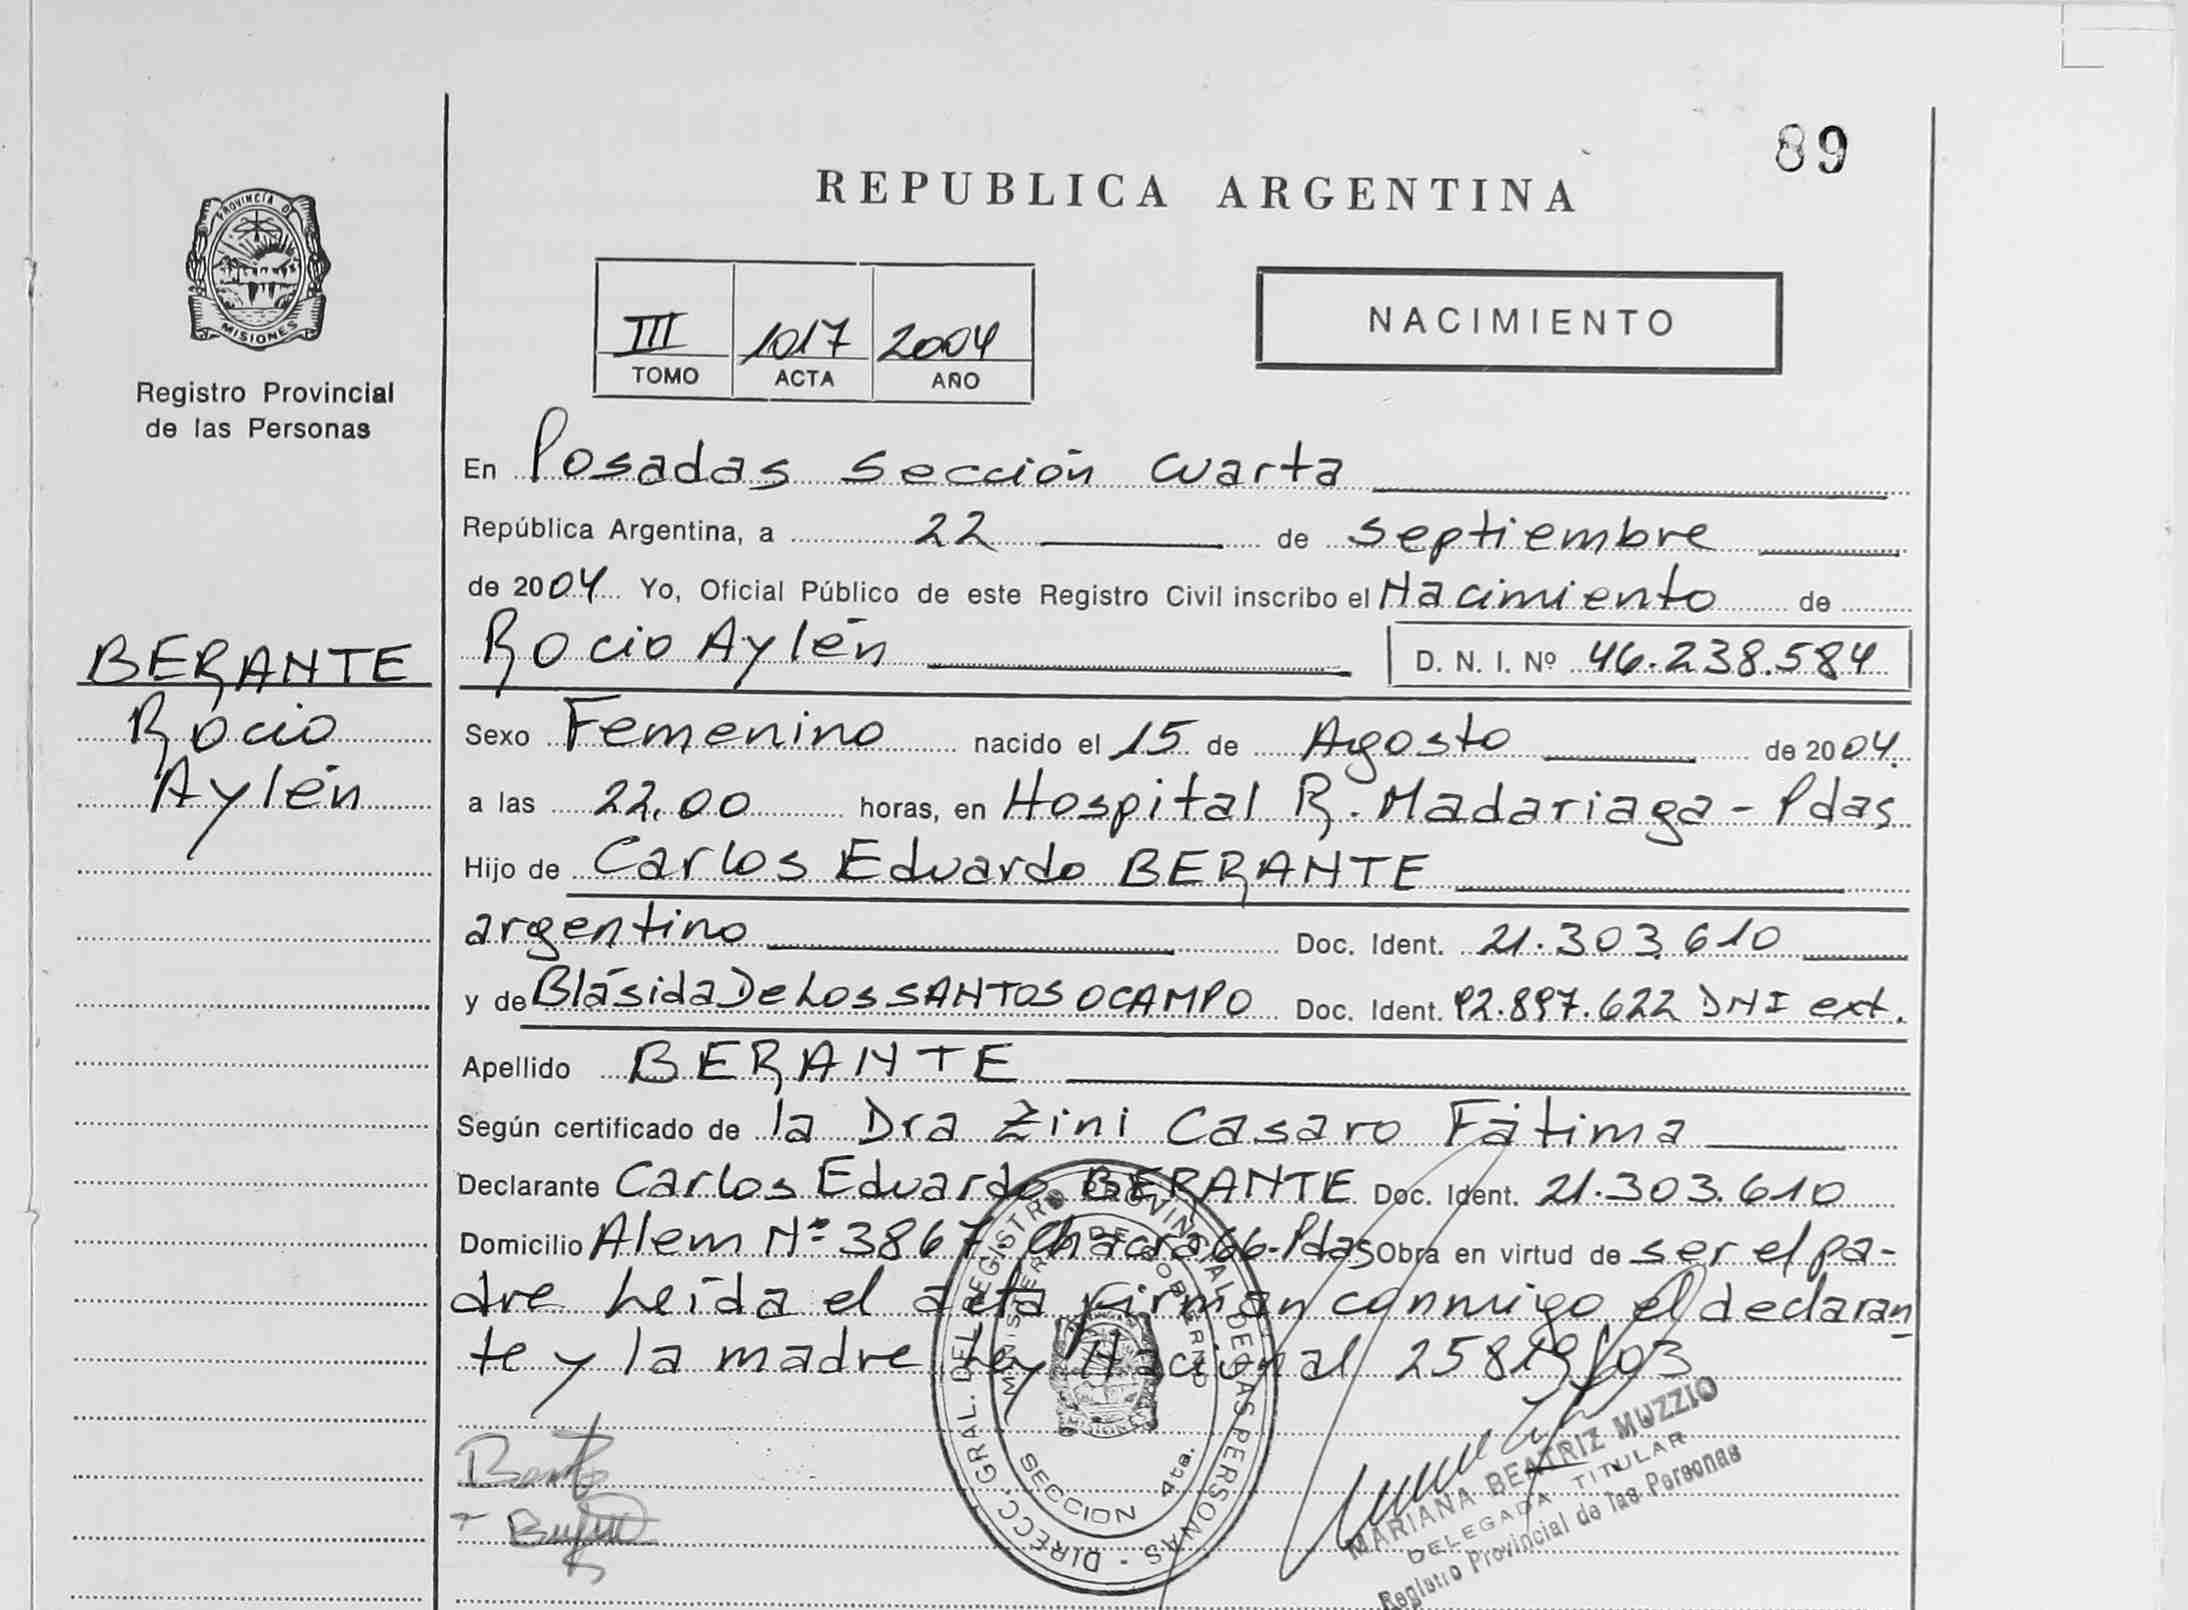 89
REPUBLICA ARGENTINA
PROVINCIA DE
MISIONES
Registro Provincial
de las Personas
III 1017 2004
TOMO ACTA AÑO
NACIMIENTO
En Posadas Sección Cuarta
República Argentina, a 22 de septiembre
de 2004 Yo, Oficial Público de este Registro Civil inscribo el Nacimiento de
Rocio Aylén D. N. I. Nº 46.238.584
BERANTE
Rocio
Aylén
Sexo Femenino nacido el 15 de Agosto de 2004.
a las 22,00 horas, en Hospital R. Madariaga - Pdas
Hijo de Carlos Eduardo BERANTE
argentino Doc. Ident. 21.303.610
y de Blásida De Los SANTOS OCAMPO Doc. Ident. 92.897.622 DNI ext.
Apellido BERANTE
Según certificado de la Dra Zini Casaro Fátima
Declarante Carlos Eduardo BERANTE Doc. Ident. 21.303.610
Domicilio Alem Nº 3867 Chacra 66-Pdas Obra en virtud de ser el pa-
dre Leída el acta firman conmigo el declaran
te y la madre Ley Nacional 25819/03
DIRECC. GRAL. DEL REGISTRO PROVINCIAL DE LAS PERSONAS -
MINISTERIO DE GOBIERNO
SECCION 4ta.
MARIANA BEATRIZ MUZZIO
DELEGADA TITULAR
Registro Provincial de las Personas